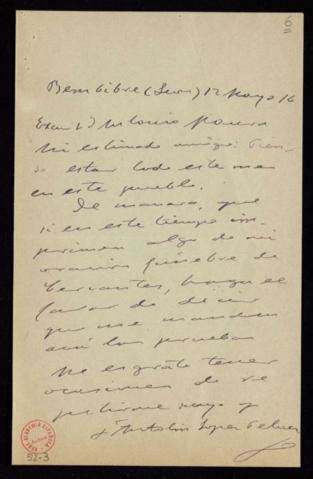 Bembibre (Leon) 12 Mayo 16
Excmo Sr D Antonio Maura
Mi estimado amigo: Pien-
so estar todo este mes
en este pueblo.
De manera, que
si en este tiempo im-
primen algo de mi
oración fúnebre de
Cervantes, haga el
favor de decir
que me manden
aquí las pruebas
Me es grato tener
ocasiones de re-
petirme suyo y
Antolín López Peláez
REAL ACADEMIA ESPAÑOLA
52-3